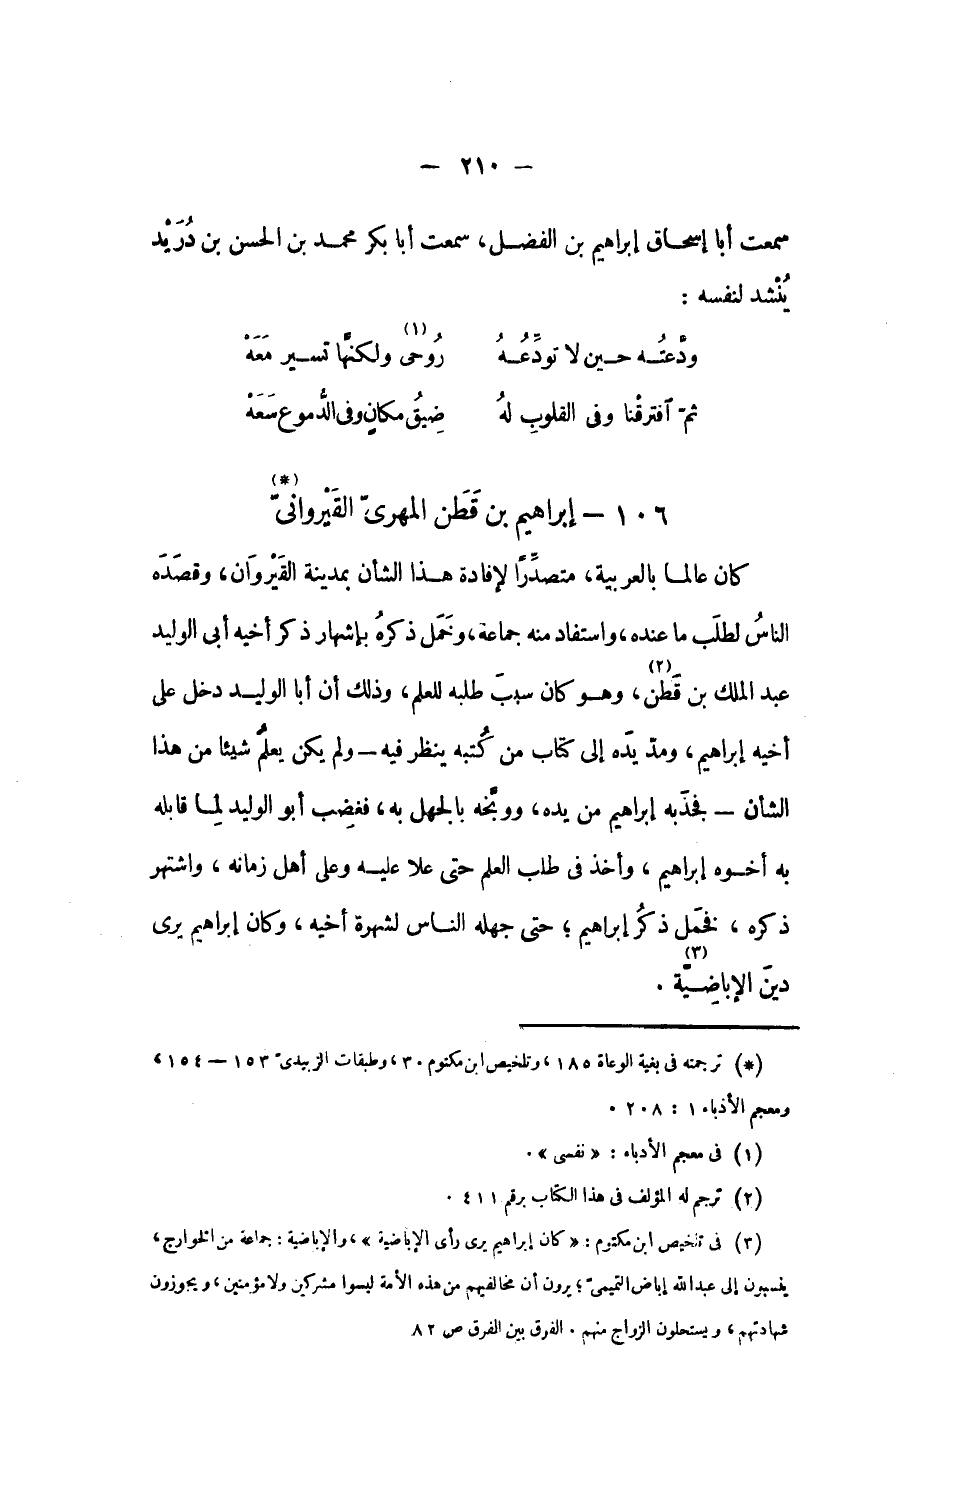 — ٢١٠ —
سمعت أبا إسحاق إبراهيم بن الفضل، سمعت أبا بكر محمد بن الحسن بن دُرَيْد
يُنْشد لنفسه :
ودّعتُه حين لا تودّعُهُ رُوحى ولكنّها تسير مَعَهْ (١)
ثمّ آفترقْنا وفى القلوبِ لهُ ضِيقُ مكانٍ وفى الدُّموع سَعَهْ
١٠٦ – إبراهيم بن قَطَن المهرىّ القَيْروانىّ (*)
كان عالما بالعربية، متصدِّرًا لإفادة هذا الشأن بمدينة القَيْروَان، وقصَدَه
الناسُ لطلَب ما عنده، واستفاد منه جماعة، وخَمَل ذكرهُ بإشهار ذكر أخيه أبى الوليد
عبد الملك بن قَطَن (٢)، وهو كان سببَ طلبه للعلم، وذلك أن أبا الوليد دخل على
أخيه إبراهيم، ومدّ يدَه إلى كتاب من كُتبه ينظر فيه – ولم يكن يعلمُ شيئا من هذا
الشأن – فجذَبه إبراهيم من يده، ووبَّخه بالجهل به، فغضِب أبو الوليد لِما قابله
به أخوه إبراهيم، وأخذ فى طلب العلم حتى علا عليه وعلى أهل زمانه، واشتهر
ذكره، فخمَل ذكرُ إبراهيم؛ حتى جهله الناس لشهرة أخيه، وكان إبراهيم يرى
دينَ الإباضيَّة (٣).
(*) ترجمته فى بغية الوعاة ١٨٥، وتلخيص ابن مكتوم ٣٠، وطبقات الزبيدىّ ١٥٣ – ١٥٤،
ومعجم الأدباء ١ : ٢٠٨ .
(١) فى معجم الأدباء : « نفسى » .
(٢) ترجم له المؤلف فى هذا الكتاب برقم ٤١١ .
(٣) فى تلخيص ابن مكتوم : « كان إبراهيم يرى رأى الإباضية »، والإباضية : جماعة من الخوارج،
ينسبون إلى عبد الله إباض التميمىّ؛ يرون أن مخالفيهم من هذه الأمة ليسوا مشركين ولا مؤمنين، ويجوزون
شهادتهم، ويستحلون الزواج منهم . الفرق بين الفرق ص ٨٢